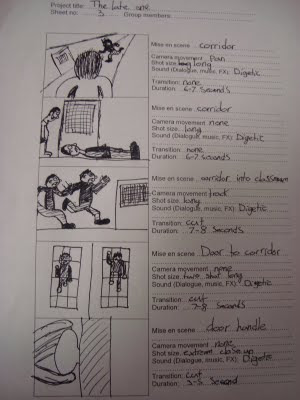 Project title: The late one
Sheet no: 3 Group members:
Mise en scene : corridor
Camera movement: pan
Shot size: long
Sound (Dialogue, music, FX) Digetic
Transition: none
Duration: 6-7 Seconds
Mise en scene : corridor
Camera movement none
Shot size. long
Sound (Dialogue, music, FX) Digetic
Transition: none
Duration: 6-7 Seconds
Mise en scene : corridor into classroom
Camera movement track
Shot size: long
Sound (Dialogue, music, FX) Digetic
Transition: cut
Duration: 7-8 Seconds
Mise en scene : Door to corridor
Camera movement none
Shot size: long
Sound (Dialogue, music, FX) Digetic
Transition: cut
Duration: 7-8 Seconds
Mise en scene : door handle
Camera movement none
Shot size extreme close up
Sound (Dialogue, music, FX) Digetic
Transition: cut
Duration: 3-5 Second